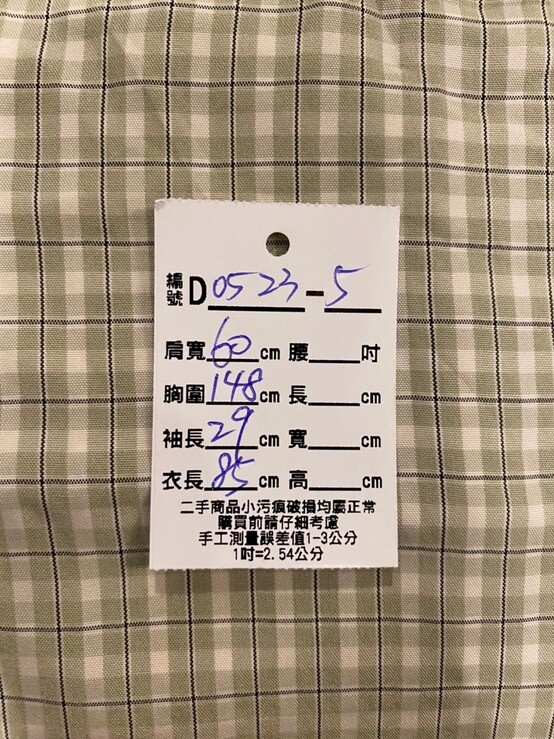 編號D0523-5
肩寬60cm 腰____吋
胸圍148cm 長____cm
袖長29cm 寬____cm
衣長85cm 高____cm
二手商品小污痕破損均屬正常
購買前請仔細考慮
手工測量誤差值1-3公分
1吋=2.54公分